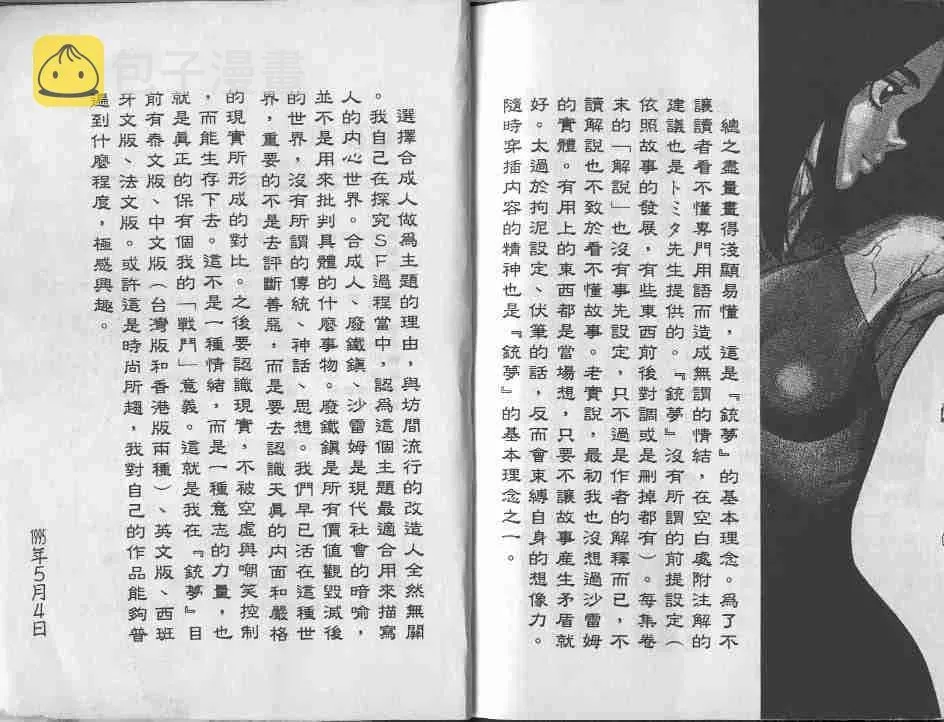 總之盡量畫得淺顯易懂，這是『銃夢』的基本理念。為了不
讓讀者看不懂專門用語而造成無謂的情結，在空白處附注解的
建議也是トミタ先生提供的。『銃夢』沒有所謂的前提設定（
依照故事的發展，有些東西前後對調或是刪掉都有）。每集卷
末的「解說」也沒有事先設定，只不過是作者的解釋而已，不
讀解說也不致於看不懂故事。老實說，最初我也沒想過沙雷姆
的實體。有用上的東西都是當場想，只要不讓故事產生矛盾就
好。太過於拘泥設定、伏筆的話，反而會束縛自身的想像力。
隨時穿插內容的精神也是『銃夢』的基本理念之一。
選擇合成人做為主題的理由，與坊間流行的改造人全然無關
。我自己在探究SF過程當中，認為這個主題最適合用來描寫
人的內心世界。合成人、廢鐵鎮、沙雷姆是現代社會的暗喻，
並不是用來批判具體的什麼事物。廢鐵鎮是所有價值觀毀滅後
的世界，沒有所謂的傳統、神話、思想。我們早已活在這種世
界，重要的不是去評斷善惡，而是要去認識天真的內面和嚴格
的現實所形成的對比。之後要認識現實，不被空虛與嘲笑控制
，而能生存下去。這不是一種情緒，而是一種意志的力量，也
就是真正的保有個我的「戰鬥」意義。這就是我在『銃夢』目
前有泰文版、中文版（台灣版和香港版兩種）、英文版、西班
牙文版、法文版。或許這是時尚所趨，我對自己的作品能夠普
遍到什麼程度，極感興趣。
1995年5月4日
包子漫畫